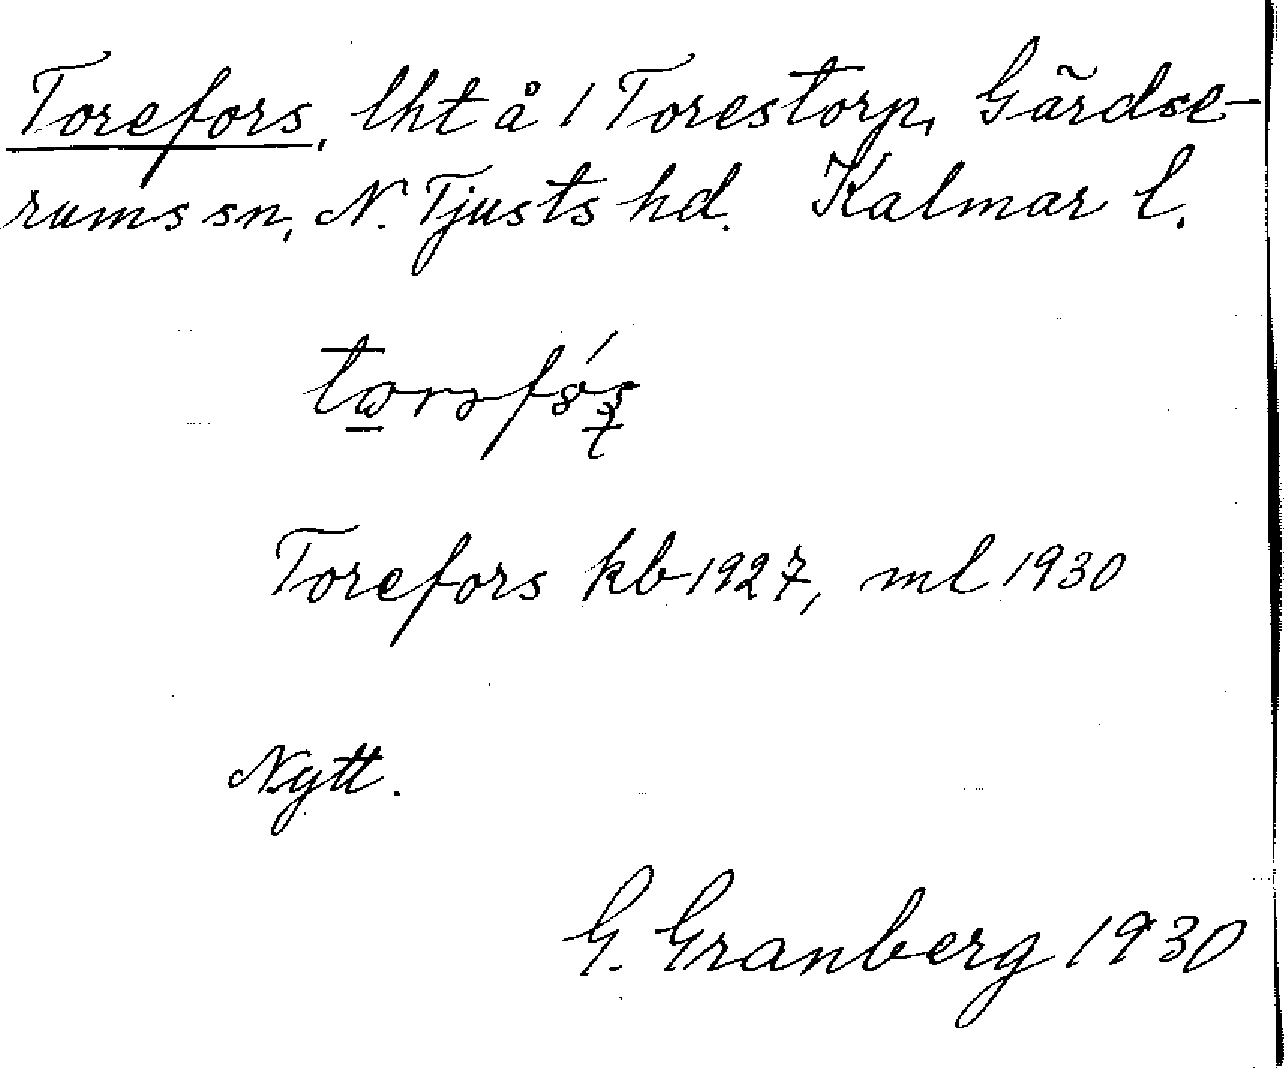 Torefors, lht å 1 Torestorp, Gärdse-
rums sn, N. Tjusts hd. Kalmar l.
Torefors kb 1927, ml 1930
Nytt.
G. Granberg 1930